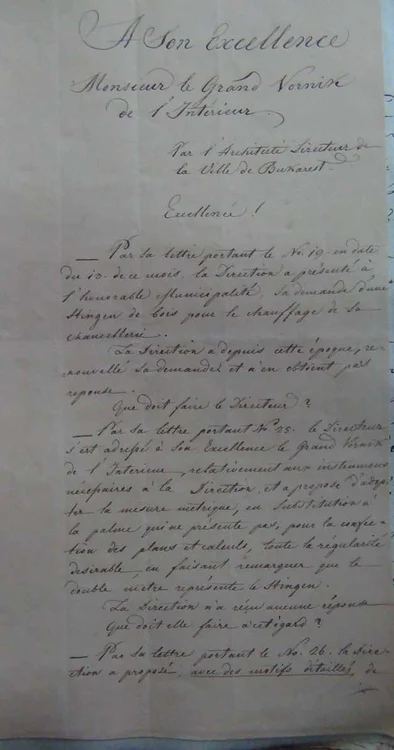 A Son Excellence
Monsieur le Grand Vornik
de l'Intérieur.
Par l'Architecte Directeur de
la Ville de Bukarest.
Excellence !
— Par sa lettre portant le No. 19. en date
du 13. de ce mois, la Direction a présenté à
l'honorable Municipalité, sa demande d'une
Stingen de bois pour le chauffage de sa
chancellerie.
La Direction a depuis cette époque, re-
nouvellé sa demande et n'en obtient pas
reponse.
Que doit faire le Directeur ?
— Par sa lettre portant No. 25. le Directeur
s'est adressé à Son Excellence le Grand Vornik
de l'Interieur, relativement aux instrumens
nécessaires à la Direction, et a proposé d'adop-
ter la mesure métrique, en substitution à
la palme qui ne présente pas, pour la confec-
tion des plans et calculs, toute la régularité
desirable en faisant remarquer que le
double métre représente le Stingen.
La Direction n'a reçu aucune réponse
Que doit elle faire à cet égard ?
— Par sa lettre portant le No. 26. la Dire-
ction a proposé, avec des motifs détaillés, de